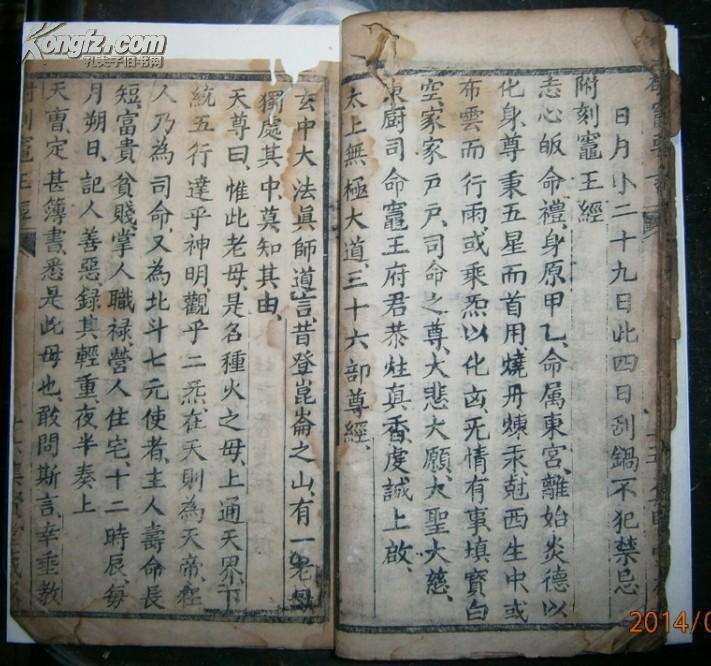 日月小二十九日此四日刮鍋不犯禁忌
附刻竈王經
志心皈命禮、身原甲乙、命属東宮、離始炎德以
化身、尊秉五星而首用、燒丹煉汞、尅西生中、或
布雲而行雨、或乘炁以化凶、无情有事填寶白
空、家家戸戸、司命之尊、大悲大願、大聖大慈、
東厨司命竈王府君恭炷真香、虔誠上啟、
太上無極大道、三十六部尊經、
玄中大法眞師道言、昔登崑崙之山、有一老母
獨處其中、莫知其由、
天尊曰、惟此老母、是名種火之母、上通天界、下
統五行、達乎神明、觀乎二炁、在天則為天帝、在
人乃為司命、又為北斗七元使者、主人壽命長
短、富貴貧賤、掌人職禄、營人住宅、十二時辰、每
月朔日、記人善惡、録其輕重、夜半奏上
天曹、定甚簿書、悉是此母也、敢問斯言、幸垂教
附刻竈王經
Kongfz.com
孔夫子旧书网
2014/0